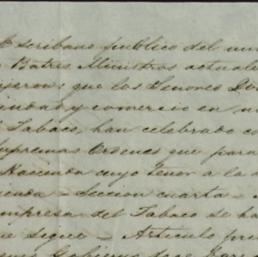 Escribano publico del nu
Batres Ministros actuale
ijeron: que los Señores D
indad y comercio en
Tabaco, han celebrado co
upremas Ordenes que para
Hacienda cuyo tenor a la
ienda - Seccion cuarta -
mpresa del Tabaco se ha
ue sigue - Articulo pri
Gobierno